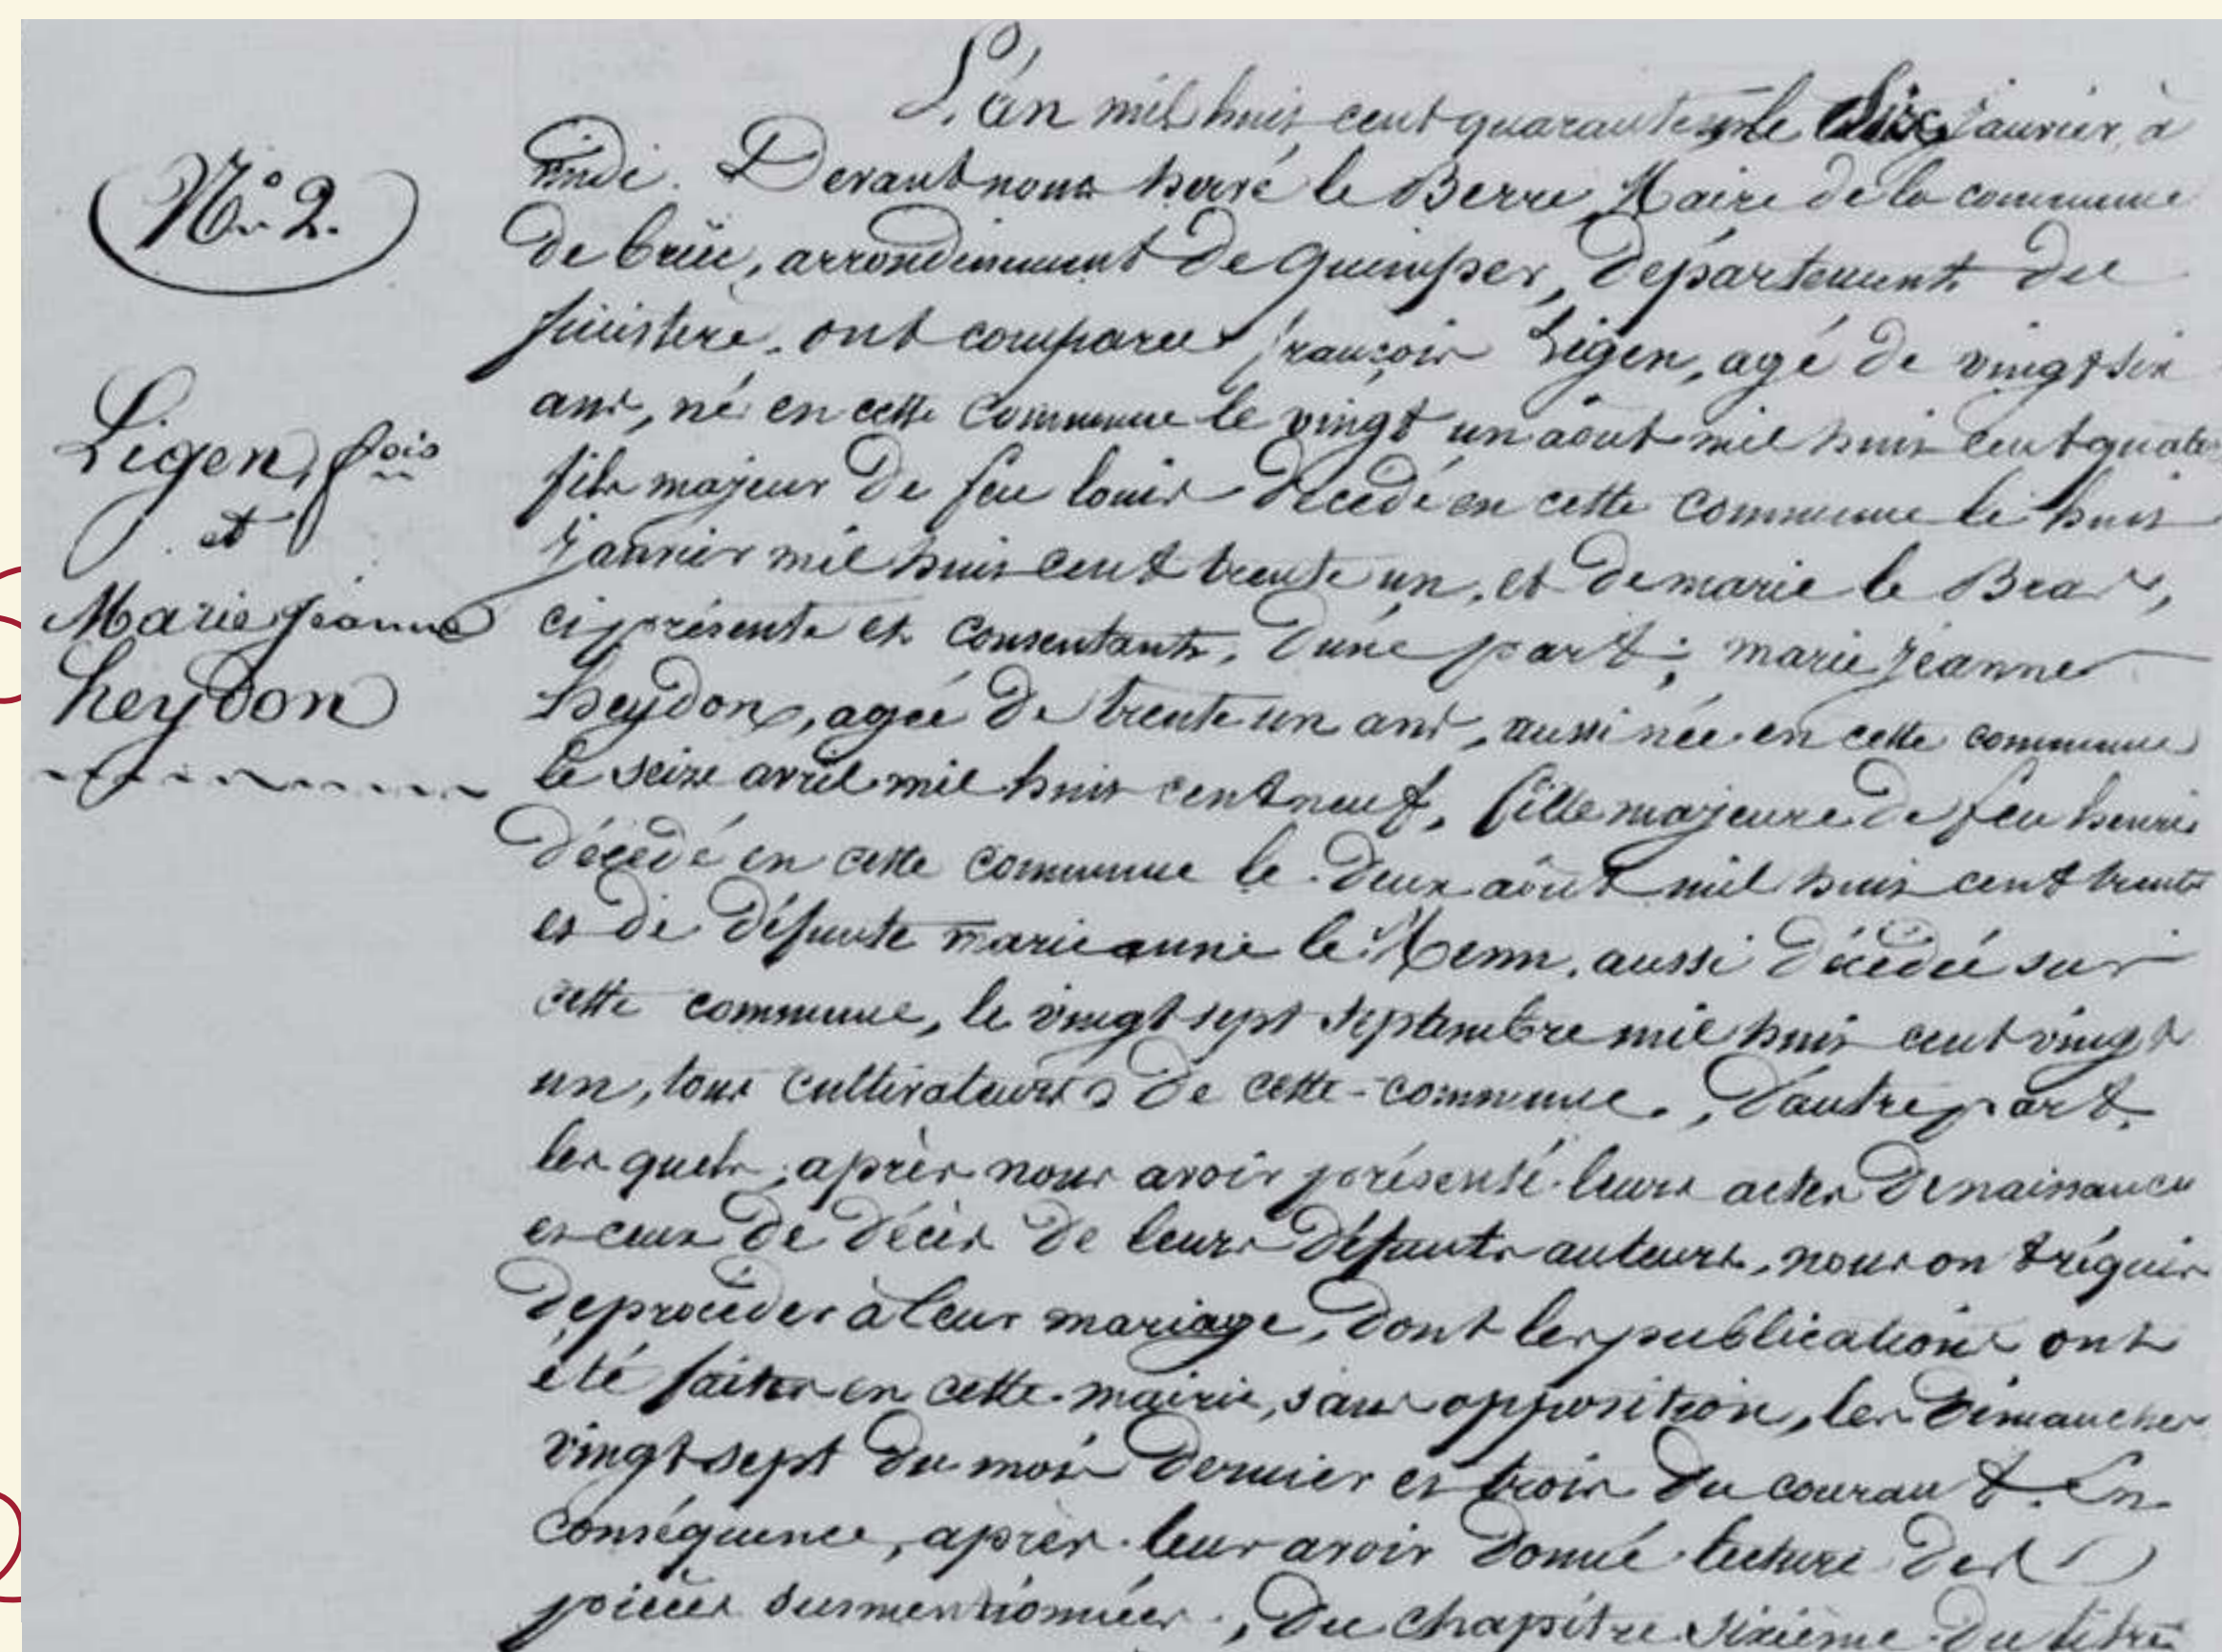 L'an mil huit cent quarante un le dix janvier, à
midi. Devant nous hervé le Berre, Maire de la commune
de briec, arrondissement de quimper, département du
finistère, ont comparu françois Ligen, agé de vingt six
ans, né en cette commune le vingt un aout mil huit cent quator
fils majeur de feu louis décédé en cette commune le huit
janvier mil huit cent trente un, et de marie le Bras,
ci présente et consentante, d'une part; marie jeanne
heydon, agée de trente un ans, aussi née en cette commune
le seize avril mil huit cent neuf, fille majeure de feu henri
décédé en cette commune le deux août mil huit cent trente
et de défunte marie anne le Menn, aussi décédée sur
cette commune, le vingt sept septembre mil huit cent vingt
un, tous cultivateurs de cette commune, d'autre part.
lesquels, après nous avoir présenté leurs actes de naissance
et ceux de décès de leurs défunts auteurs, nous ont réquis
de procéder à leur mariage, dont les publications ont
été faites en cette mairie, sans opposition, les dimanches
vingt sept du mois dernier et trois du courant. En
conséquence, après leur avoir donné lecture des
pièces susmentionnées, du chapitre sixième du titre
N° 2.
Ligen, fois
et
Marie jeanne
heydon